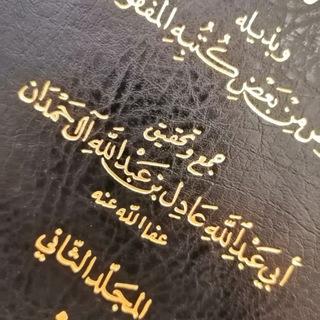 وبذيله
مِنْ بَعْضِ كُتُبِهِ المَفْقُو
جمع وتحقيق
أَبِي عَبْدِ اللَّهِ عَادِلِ بْنِ عَبْدِ اللَّهِ آلِ حَمْدَان
عفا اللّه عنه
المجلّد الثّاني